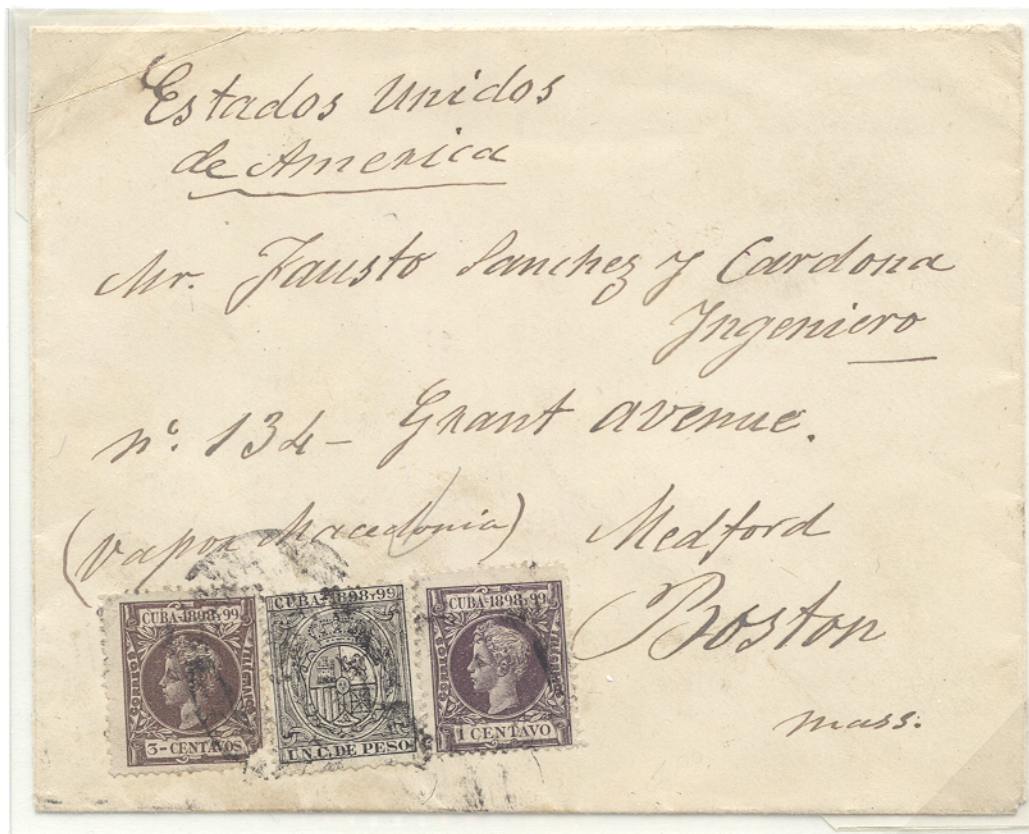 Estados Unidos
de America
Mr. Fausto Sanchez y Cardona
Ingeniero
nº. 134- Grant avenue.
(Vapor Macedonia) Medford
Boston
Mass.
CUBA-1898Y99
CORREOS TELEGRAFS
3-CENTAVOS
CUBA-1898Y99
UN C. DE PESO
CUBA-1898Y99
CORREOS TELEGRAFS
1 CENTAVO